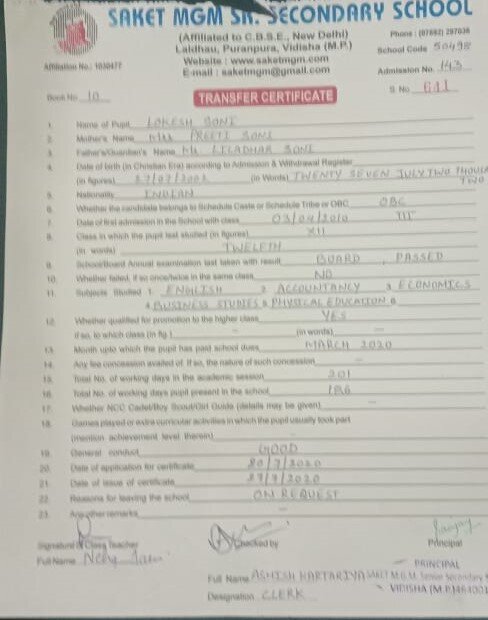 SAKET MGM SR. SECONDARY SCHOOL
(Affiliated to C.B.S.E., New Delhi)
Laldhau, Puranpura, Vidisha (M.P.)
Phone : (07592) 297036
Website : www.saketmgm.com
School Code 50498
Affiliation No.: 1030477
E-mail : saketmgm@gmail.com
Admission No. 143
Book No. 10
TRANSFER CERTIFICATE
S. No. 611
1. Name of Pupil LOKESH SONI
2. Mother's Name Mrs PREETI SONI
3. Father's/Guardian's Name Mr LILADHAR SONI
4. Date of birth (in Christian Era) according to Admission & Withdrawal Register
(in figures) 27/07/2002 (in Words) TWENTY SEVEN JULY TWO THOUSAND TWO
5. Nationality INDIAN
6. Whether the candidate belongs to Schedule Caste or Schedule Tribe or OBC OBC
7. Date of first admission in the School with class 03/04/2010 III
8. Class in which the pupil last studied (in figures) XII
(in words) TWELFTH
9. School/Board Annual examination last taken with result BOARD, PASSED
10. Whether failed, if so once/twice in the same class NO
11. Subjects Studied 1. ENGLISH 2 ACCOUNTANCY 3 ECONOMICS
4 BUSINESS STUDIES 5 PHYSICAL EDUCATION 6
12. Whether qualified for promotion to the higher class YES
if so, to which class (in fig.) - (in words) -
13. Month upto which the pupil has past school dues MARCH 2020
14. Any fee concession availed of. If so, the nature of such concession -
15. Total No. of working days in the academic session 201
16. Total No. of working days pupil present in the school 186
17. Whether NCC Cadet/Boy Scout/Girl Guide (details may be given) -
18. Games played or extra curricular activities in which the pupil usually took part
(mention achievement level therein) -
19. General conduct GOOD
20. Date of application for certificate 20/7/2020
21. Date of issue of certificate 27/7/2020
22. Reasons for leaving the school ON REQUEST
23. Any other remarks -
Signature of Class Teacher
Checked by
Principal
Full Name
PRINCIPAL
Full Name ASHISH KARTARIYA SAKET M.G.M. Senior Secondary
VIDISHA (M.P.) 464001
Designation CLERK